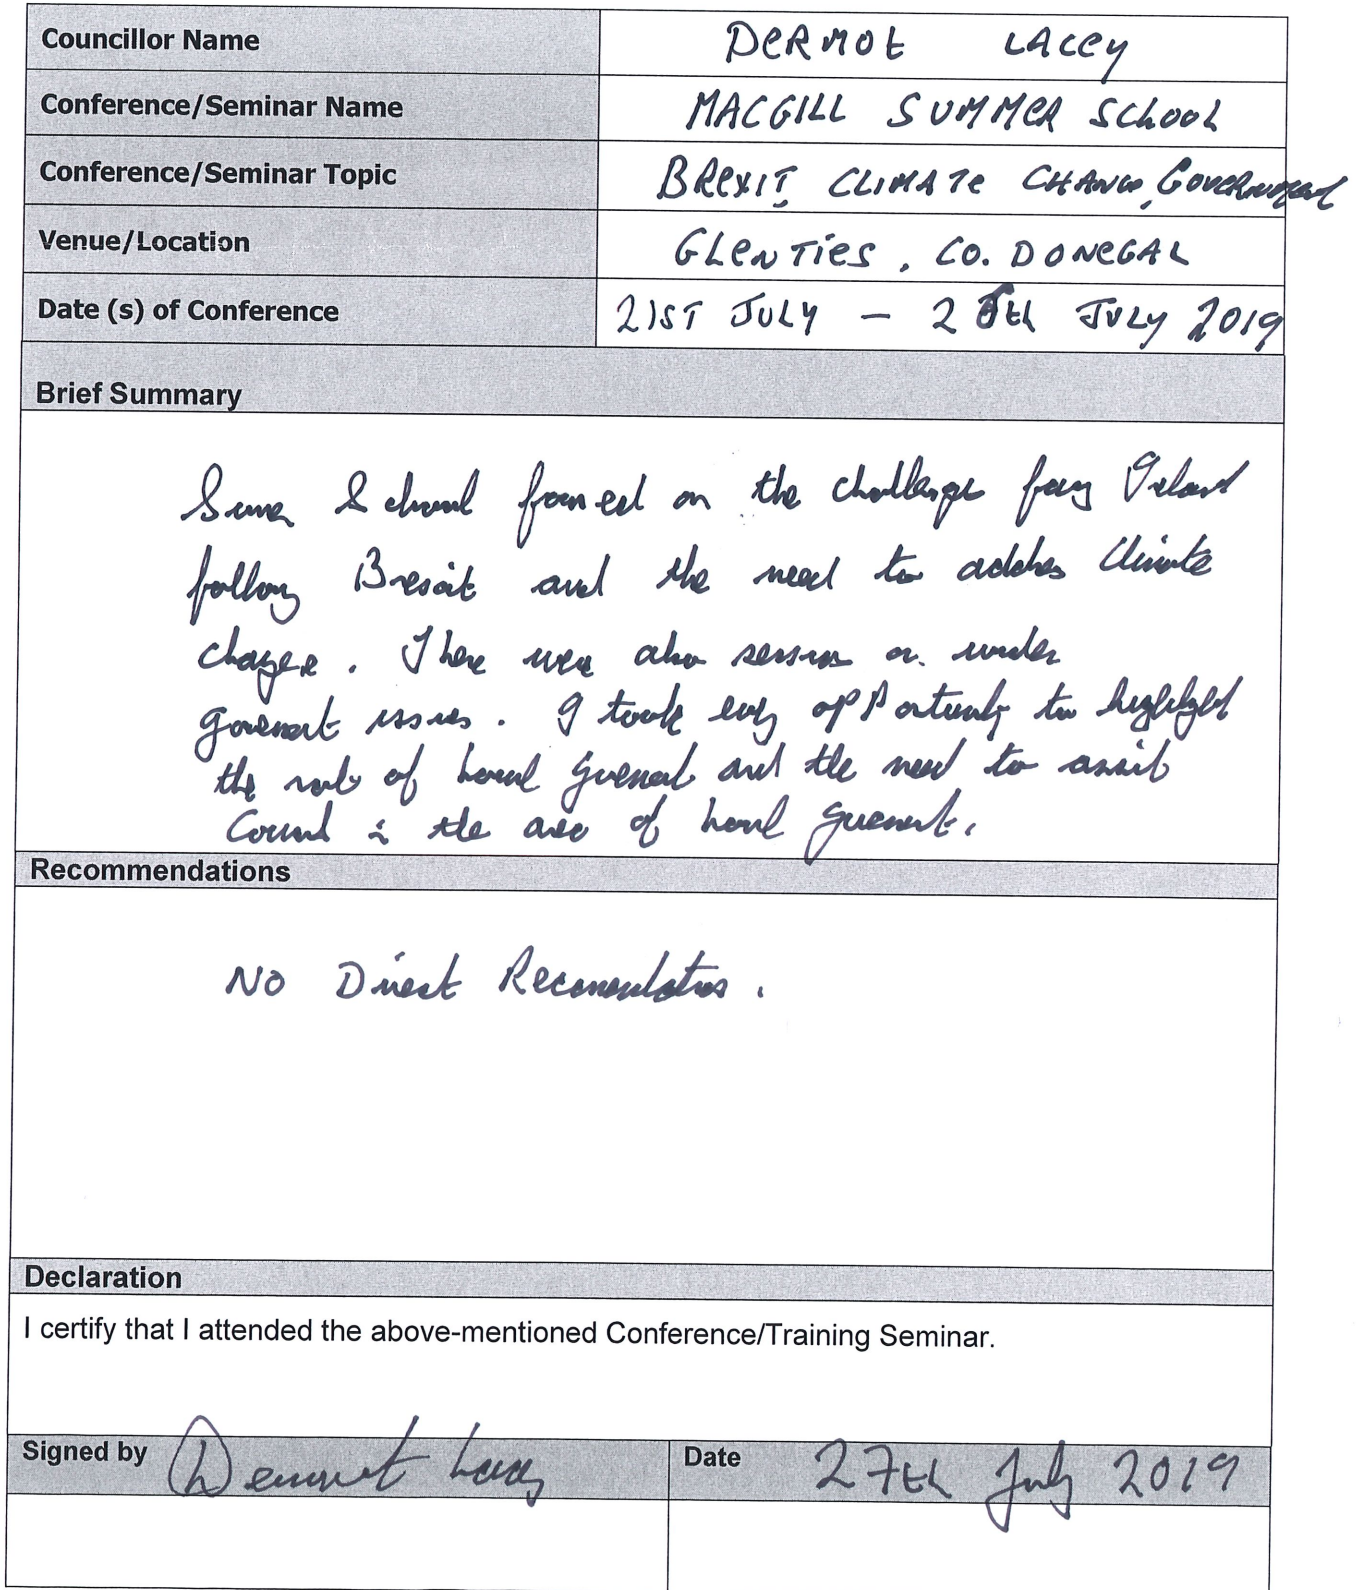 Councillor Name DERMOT LACEY
Conference/Seminar Name MACGILL SUMMER SCHOOL
Conference/Seminar Topic BREXIT, CLIMATE CHANGE, GOVERNMENT
Venue/Location GLENTIES, CO. DONEGAL
Date (s) of Conference 21ST JULY – JULY 2019
Brief Summary
Summer School focused on the challenges facing Ireland
following Brexit and the need to address Climate
change. There were also sessions on wider
government issues. I took every opportunity to highlight
the role of Local Government and the need to assist
in the area of Local Government.
Recommendations
NO Direct Recommendations.
Declaration
I certify that I attended the above-mentioned Conference/Training Seminar.
Signed by Dermot Lacey Date 27th July 2019